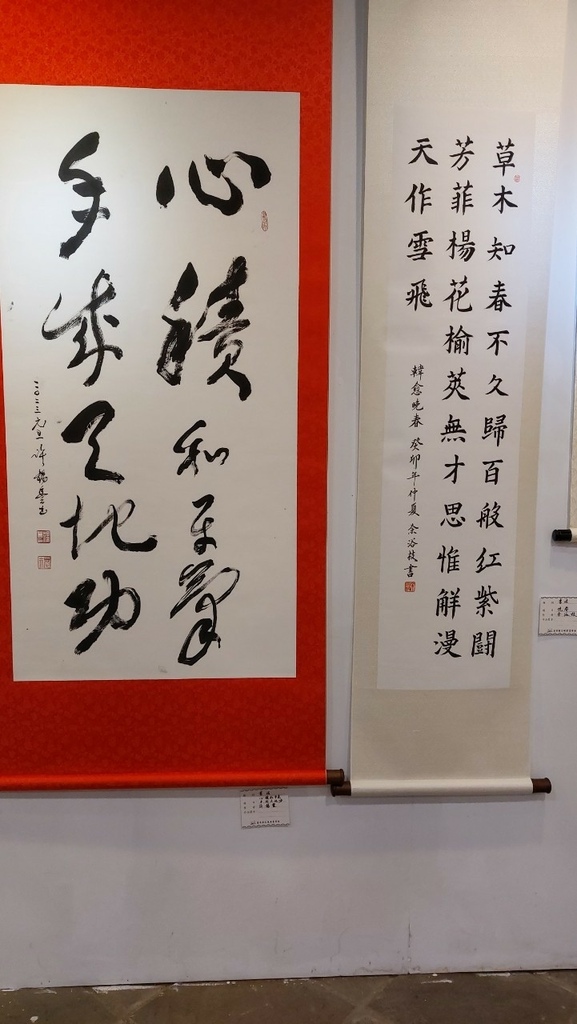 草木知春不久歸百般紅紫鬪
芳菲楊花榆莢無才思惟觧漫
天作雪飛
韓愈晚春 癸卯年仲夏 余浴枝書
心積和平氣
手成天地功
二〇二三元旦 許